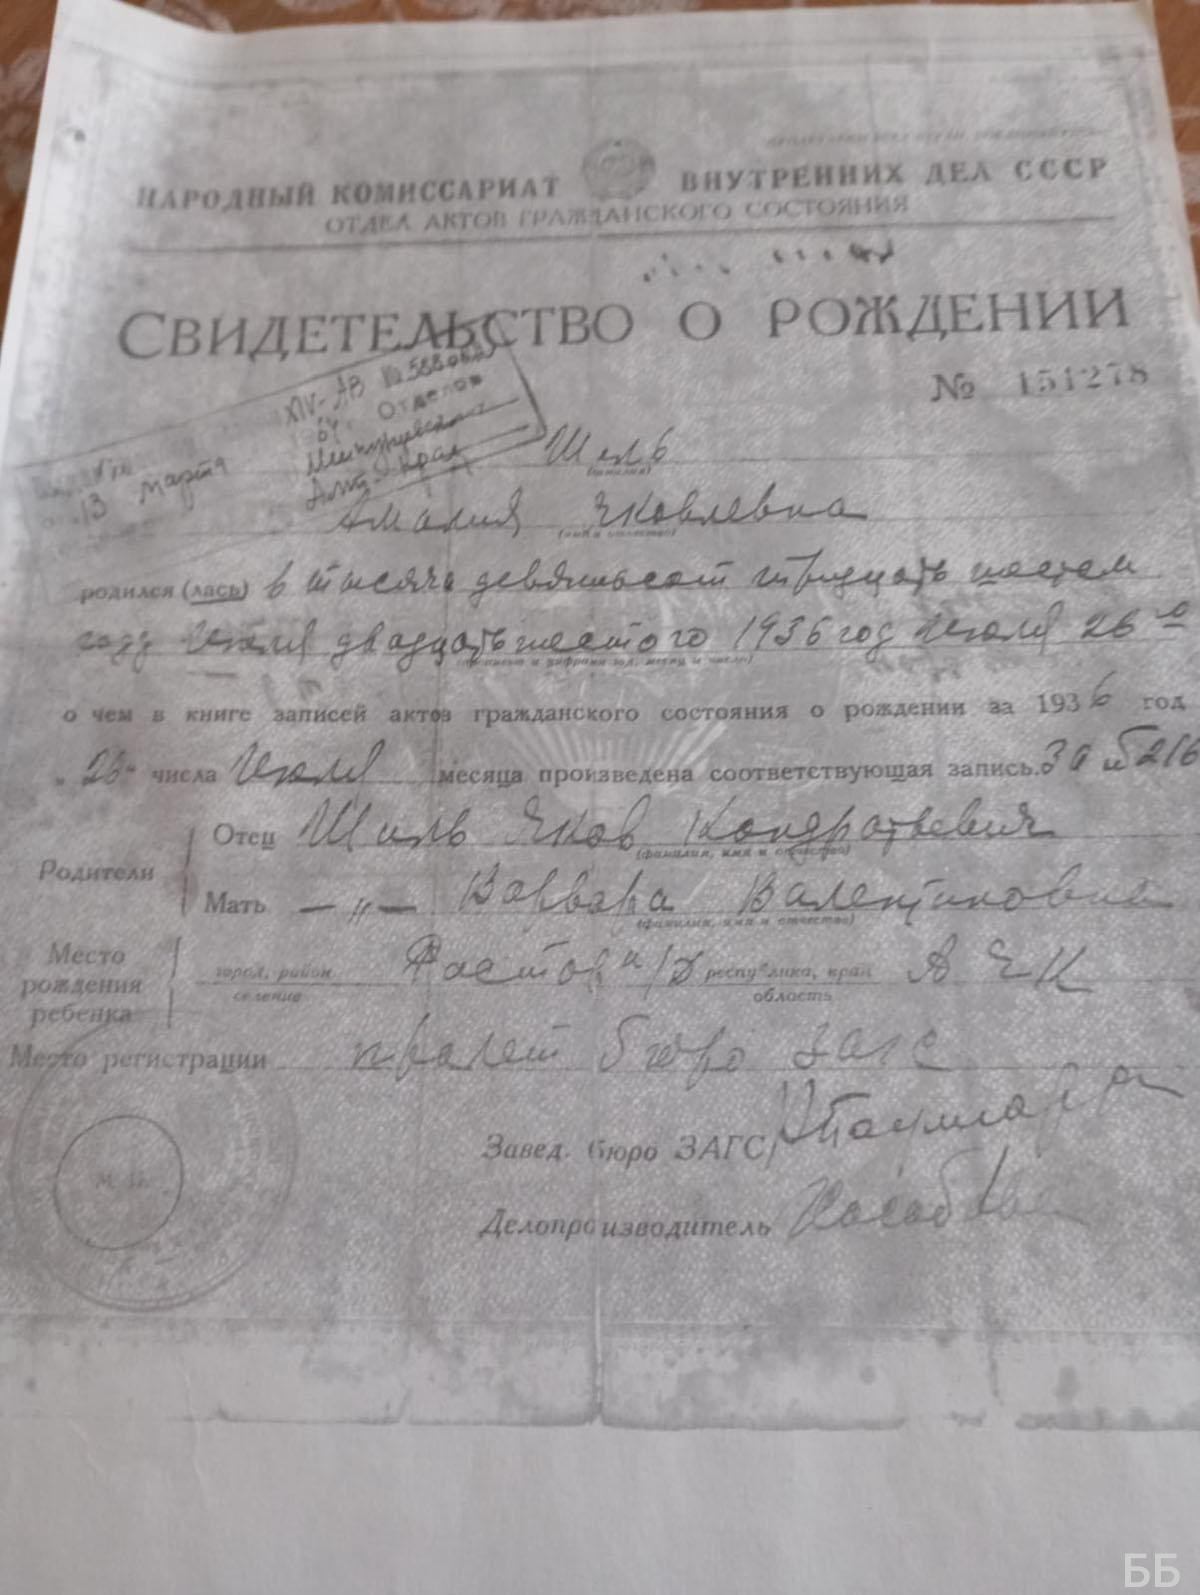 НАРОДНЫЙ КОМИССАРИАТ ВНУТРЕННИХ ДЕЛ СССР
ОТДЕЛ АКТОВ ГРАЖДАНСКОГО СОСТОЯНИЯ
СВИДЕТЕЛЬСТВО О РОЖДЕНИИ
№ 151278
XIV-АВ №
Отделом
13 марта
Край
Шиль
(фамилия)
Амалия Яковлевна
(имя и отчество)
родился (лась) в тысяча девятьсот тридцать шестом
году Июля двадцать шестого 1936 год Июля 26 го
(прописью и цифрами год, месяц и число)
о чем в книге записей актов гражданского состояния о рождении за 1936 год
"26" числа Июля месяца произведена соответствующая запись. За № 216
Родители
Отец Шиль Яков Кондратьевич
(фамилия, имя и отчество)
Мать —"— Варвара Валентиновна
(фамилия, имя и отчество)
Место рождения ребенка
город, район Ростов н/Д республика, край А Ч К
селение область
Место регистрации пролет бюро загс
Завед. бюро ЗАГС
Делопроизводитель
М. П.
ББ